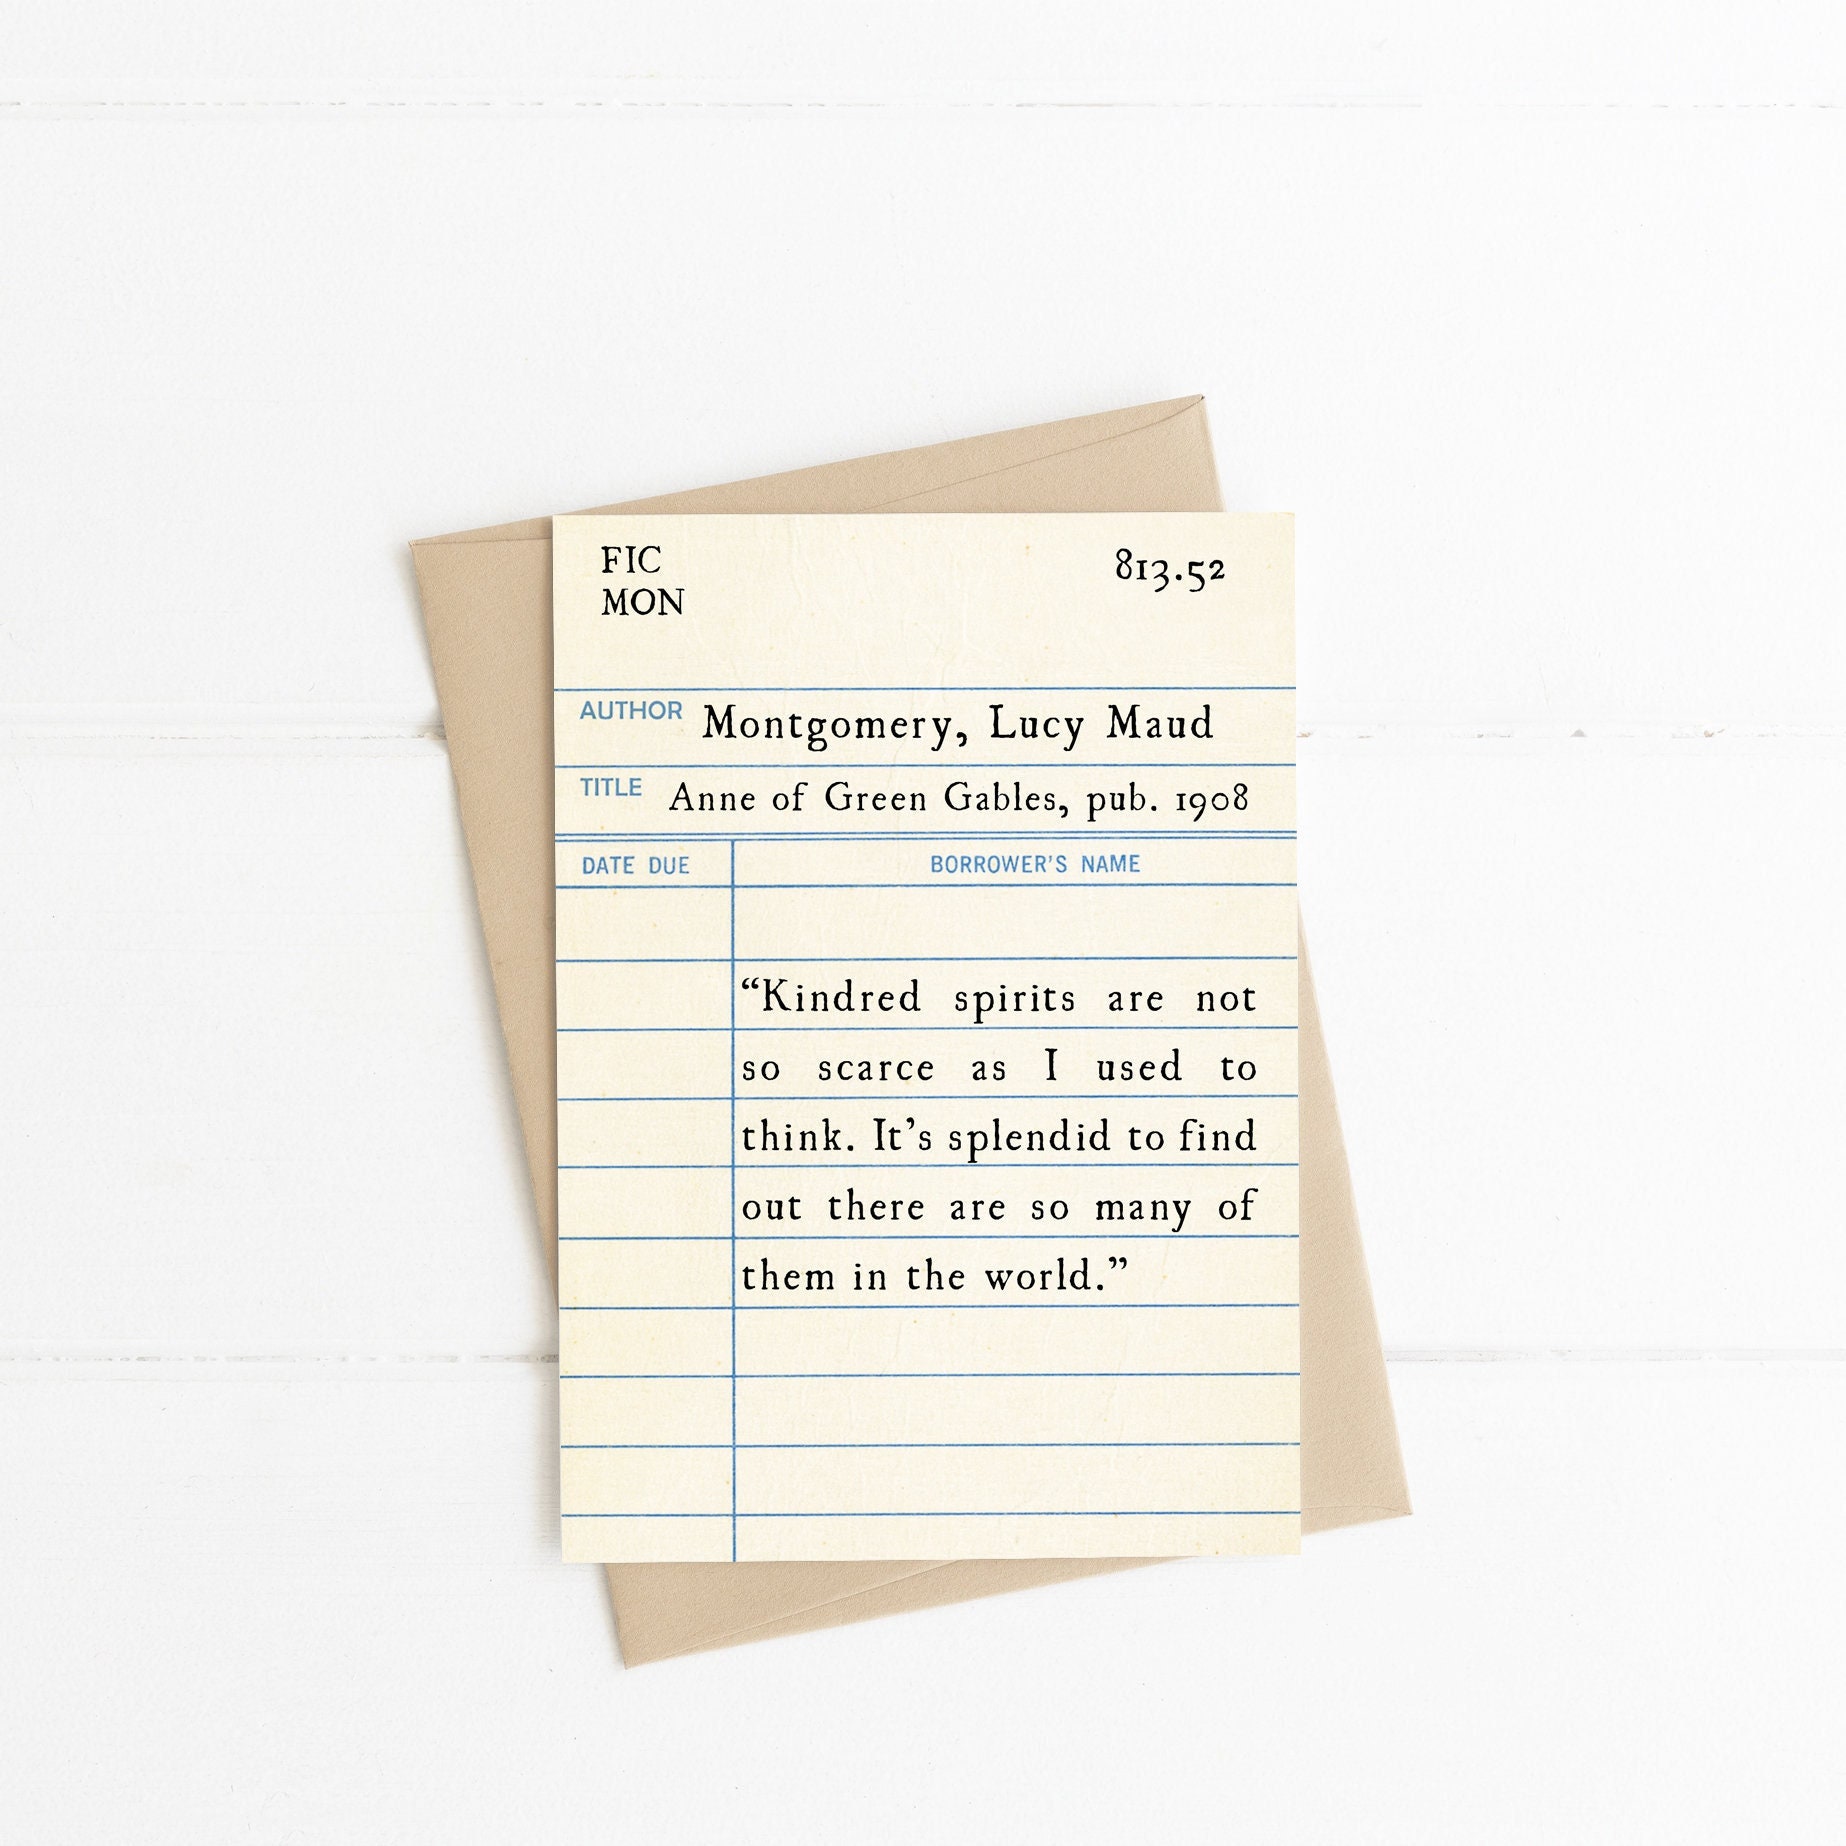 FIC
MON
813.52
AUTHOR Montgomery, Lucy Maud
TITLE Anne of Green Gables, pub. 1908
DATE DUE BORROWER'S NAME
“Kindred spirits are not
so scarce as I used to
think. It’s splendid to find
out there are so many of
them in the world.”